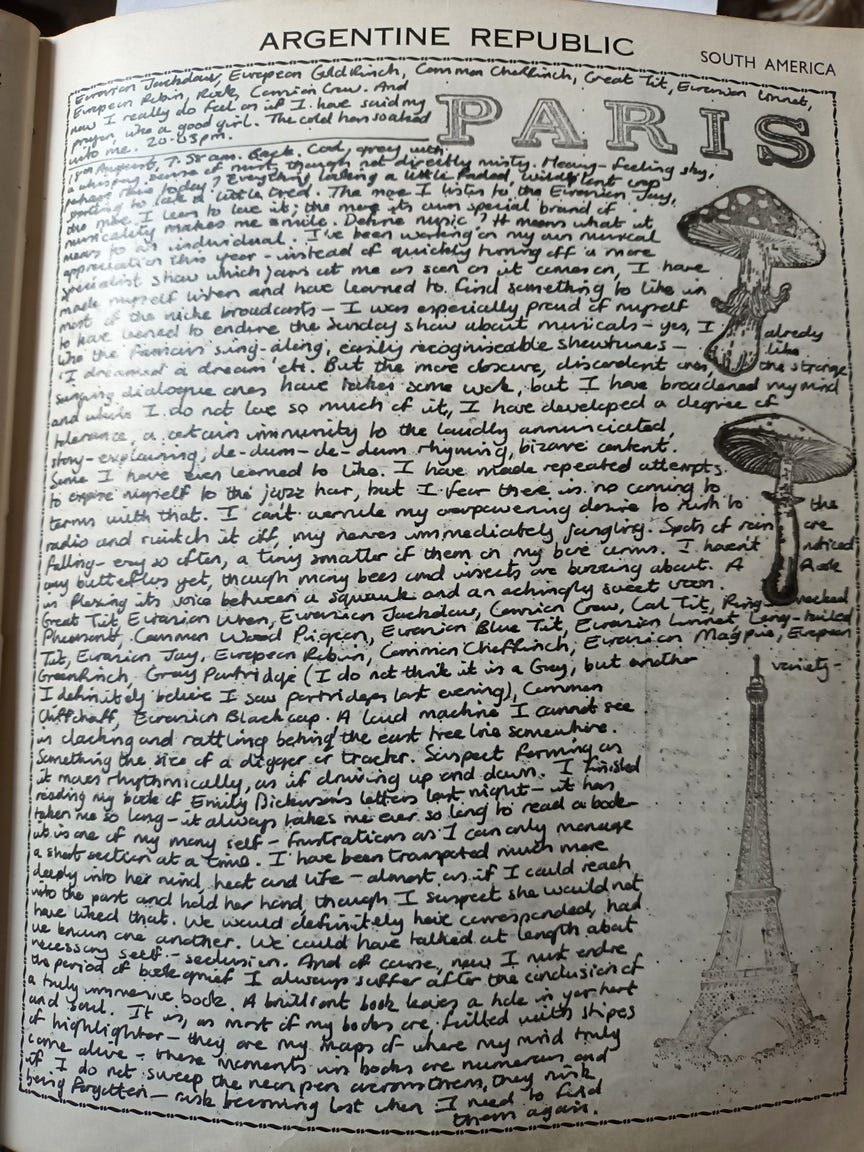 ARGENTINE REPUBLIC
SOUTH AMERICA
PARIS
Eurasian Jackdaw, European Goldfinch, Common Chaffinch, Great Tit, Eurasian Linnet,
European Robin, Rook, Carrion Crow. And
now I really do feel as if I have said my
prayers, like a good girl. The cold has soaked
into me. 20:03pm.
18th August, 7:58am. Back. Cool, grey, with
a whispy sense of mist, though not directly misty. Heavy-feeling sky,
rain today? Everything looking a little faded,
a little tired. The more I listen to the Eurasian Jay,
the more I learn to love it; the more its own special brand of
musicality makes me smile. Define music? It means what it
means to its individual. I've been working on my own musical
appreciation this year - instead of quickly turning off a more
specialist show which jars at me as soon as it comes on, I have
made myself listen and have learned to find something to like in
most of the niche broadcasts - I was especially proud of myself
to have learned to endure the Sunday show about musicals - yes, I already
like the famous sing-along, easily recogniseable showtunes - like
'I dreamed a dream' etc. But the more obscure, discordant ones, the strange
singing dialogue ones have taken some work, but I have broadened my mind
and while I do not love so much of it, I have developed a degree of
tolerance, a certain immunity to the loudly annunciated,
story-explaining, de-dum-de-dum rhyming, bizarre content.
Some I have even learned to like. I have made repeated attempts
to expose myself to the jazz hour, but I fear there is no coming to
terms with that. I can't overrule my overpowering desire to rush to the
radio and switch it off, my nerves immediately jangling. Spots of rain are
falling - every so often, a tiny smatter of them on my bare arms. I haven't noticed
any butterflies yet, though many bees and insects are buzzing about. A Rook
is flexing its voice between a squawk and an achingly sweet
Great Tit, Eurasian Wren, Eurasian Jackdaw, Carrion Crow, Coal Tit, Ring-necked
Pheasant, Common Wood Pigeon, Eurasian Blue Tit, Eurasian Linnet, Long-tailed
Tit, Eurasian Jay, European Robin, Common Chaffinch, Eurasian Magpie, European
Greenfinch, Gray Partridge (I do not think it is a Gray, but another variety -
I definitely believe I saw partridges last evening), Common
Chiffchaff, Eurasian Blackcap. A loud machine I cannot see
is clacking and rattling behind the east tree line somewhere.
Something the size of a digger or tractor. Suspect farming as
it moves rhythmically, as if driving up and down. I finished
reading my book of Emily Dickinson's letters last night - it has
taken me so long - it always takes me ever so long to read a book -
it is one of my many self-frustrations as I can only manage
a short section at a time. I have been transported much more
deeply into her mind, heart and life - almost as if I could reach
into the past and hold her hand, though I suspect she would not
have liked that. We would definitely have corresponded, had
we known one another. We could have talked at length about
necessary self-seclusion. And of course, now I must endure
the period of book grief I always suffer after the conclusion of
a truly immersive book. A brilliant book leaves a hole in your heart
and soul. It is, as most of my books are, filled with stripes
of highlighter - they are my maps of where my mind truly
came alive - these moments in books are numerous, and
if I do not sweep the neon pen across them, they risk
being forgotten - risk becoming lost when I need to find
them again.